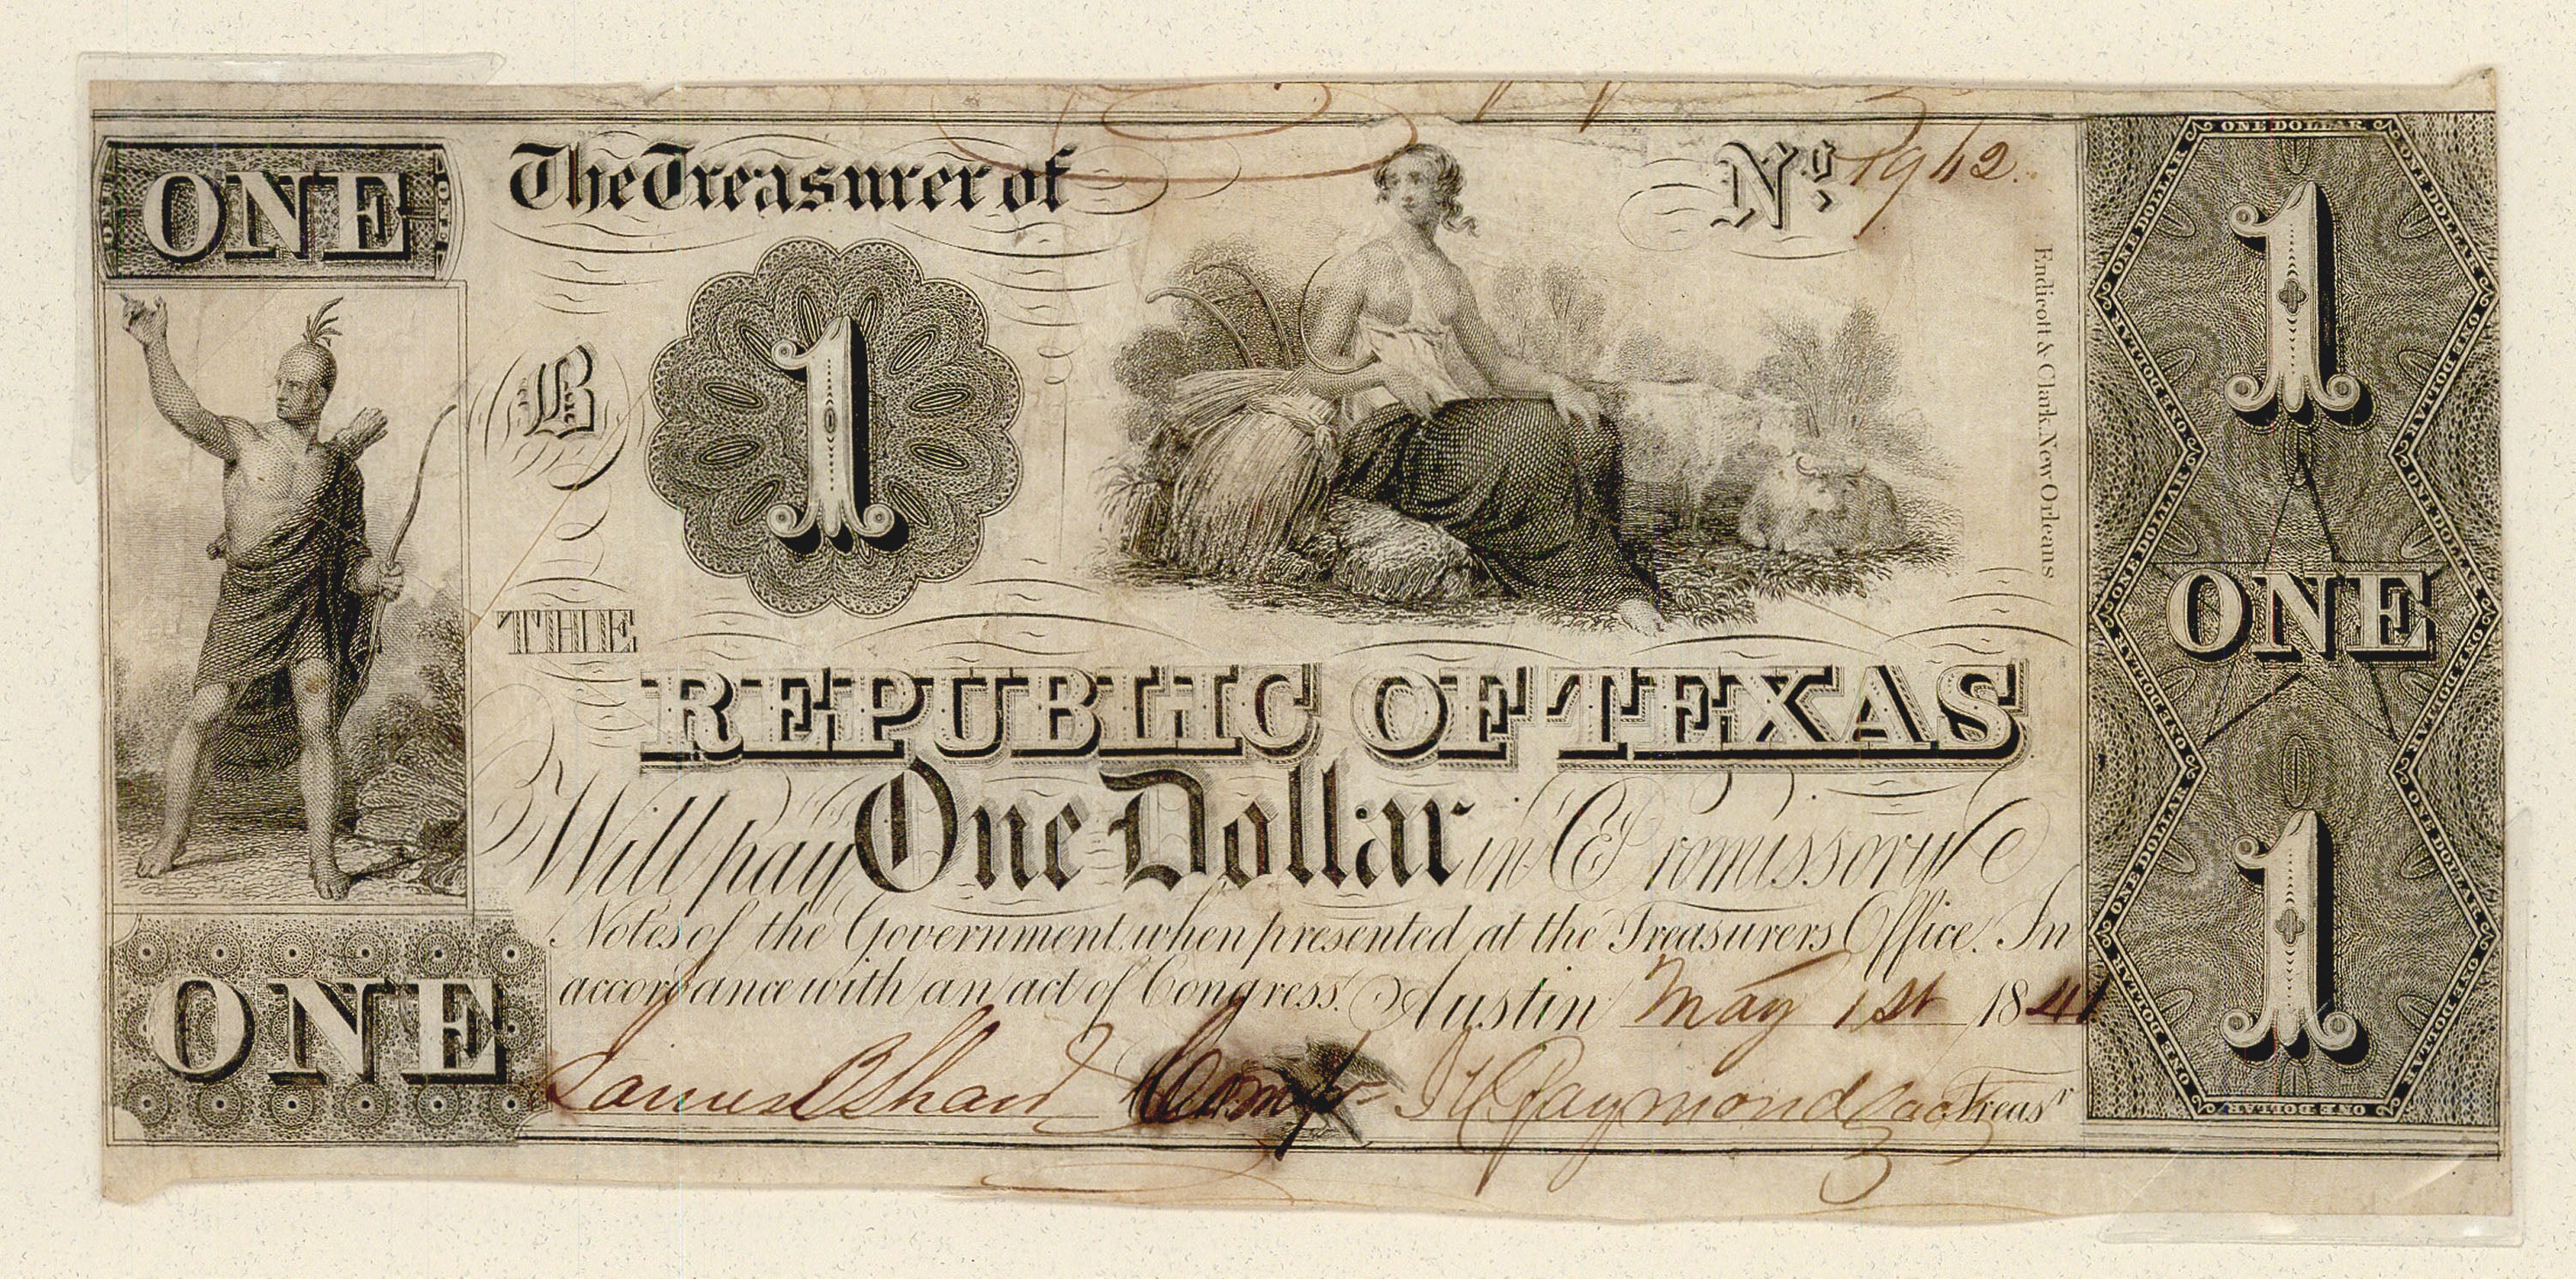 ONE
The Treasurer of
Nº. 1942.
B
1
Endicott & Clark, New Orleans
THE
REPUBLIC OF TEXAS
Will pay One Dollar in Promissory
Notes of the Government when presented at the Treasurers Office. In
accordance with an act of Congress. Austin May 1st 1841
James B Shaw Compr Treasr
ONE
ONE DOLLAR
1
ONE
1